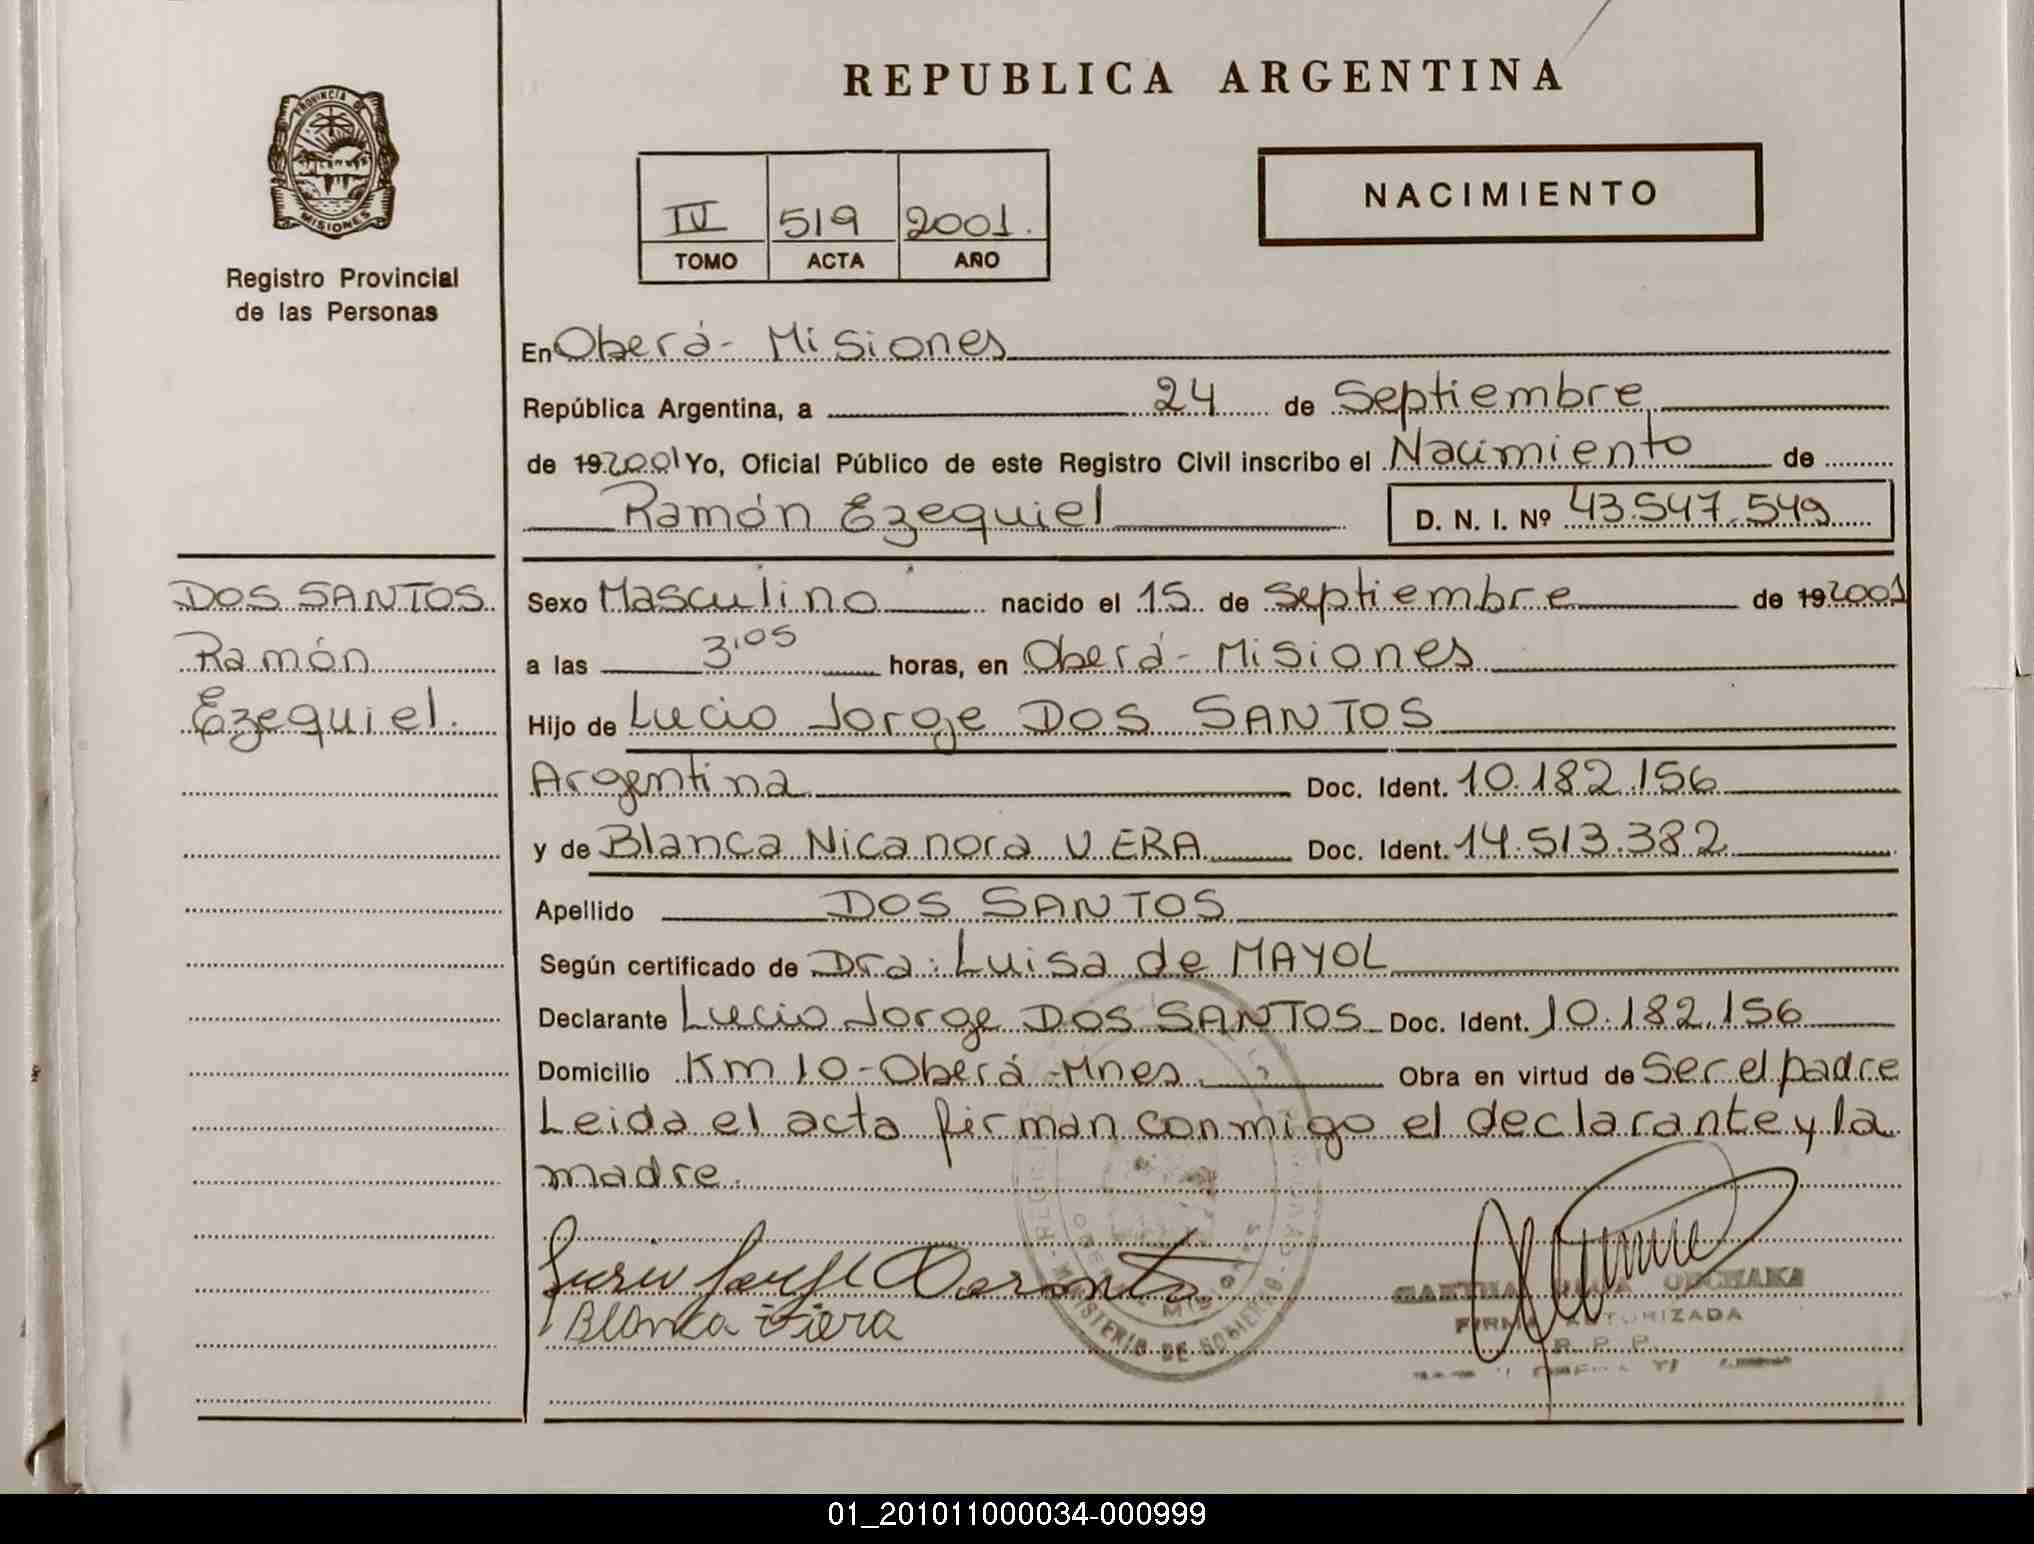 REPUBLICA ARGENTINA
PROVINCIA DE
MISIONES
Registro Provincial
de las Personas
IV 519 2001.
TOMO ACTA AÑO
NACIMIENTO
En Oberá - Misiones
República Argentina, a 24 de Septiembre
de 19 2001 Yo, Oficial Público de este Registro Civil inscribo el Nacimiento de
Ramón Ezequiel D. N. I. Nº 43.547.549
DOS SANTOS
Ramón
Ezequiel.
Sexo Masculino nacido el 15 de Septiembre de 19 2001
a las 3,05 horas, en Oberá - Misiones
Hijo de Lucio Jorge DOS SANTOS
Argentina Doc. Ident. 10.182.156
y de Blanca Nicanora VERA Doc. Ident. 14.513.382
Apellido DOS SANTOS
Según certificado de Dra: Luisa de MAYOL
Declarante Lucio Jorge DOS SANTOS Doc. Ident. 10.182.156
Domicilio Km 10 - Oberá - Mnes Obra en virtud de Ser el padre
Leida el acta firman conmigo el declarante y la
madre.
Blanca Viera
MINISTERIO DE GOBIERNO
FIRMA AUTORIZADA
R. P. P.
01_201011000034-000999